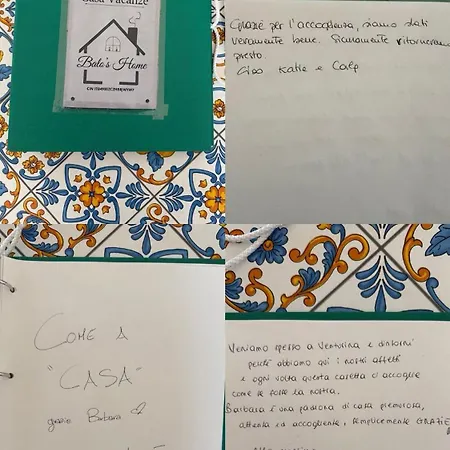 Casa Vacanze
Balo's Home
Grazie per l'accoglienza, siamo stati
veramente bene. Sicuramente ritorneremo
presto.
Ciao Katia e
COME A
"CASA"
grazie Barbara
Veniamo spesso a Venturina e dintorni
perché abbiamo qui i nostri affetti
e ogni volta questa casetta ci accoglie
come se fosse la nostra.
Barbara è una padrona di casa premurosa,
attenta ed accogliente, semplicemente GRAZIE